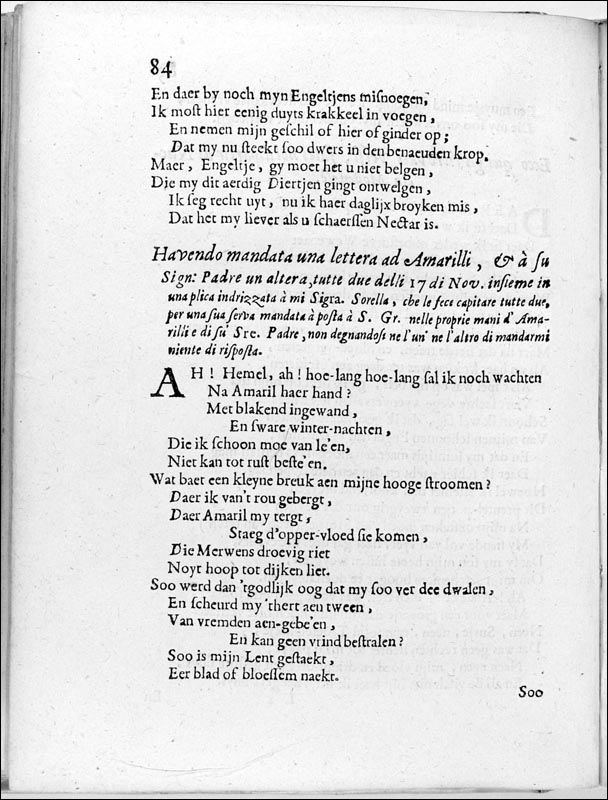 84
En daer by noch myn Engeltjens misnoegen,
Ik most hier eenig duyts krakkeel in voegen,
En nemen mijn geschil of hier of ginder op;
Dat my nu steekt soo dwers in den benaeuden krop.
Maer, Engeltje, gy moet het u niet belgen,
Die my dit aerdig Diertjen gingt ontwelgen,
Ik seg recht uyt, nu ik haer daglijx broyken mis,
Dat het my liever als u schaerssen Nectar is.
Havendo mandata una lettera ad Amarilli, & à su
Sign: Padre un altera, tutte due delli 17 di Nov. insieme in
una plica indrizzata à mi Sigra. Sorella, che le fece capitare tutte due,
per una sua serva mandata à posta à S. Gr. nelle proprie mani d'Ama-
rilli e di su' Sre. Padre, non degnandosi ne l'un' ne l'altro di mandarmi
niente di risposta.
AH! Hemel, ah! hoe-lang hoe-lang sal ik noch wachten
Na Amaril haer hand?
Met blakend ingewand,
En sware winter-nachten,
Die ik schoon moe van le'en,
Niet kan tot rust beste'en.
Wat baer een kleyne breuk aen mijne hooge stroomen?
Daer ik van't rou gebergt,
Daer Amaril my tergt,
Staeg d'opper-vloed sie komen,
Die Merwens droevig riet
Noyt hoop tot dijken liet.
Soo werd dan 'tgodlijk oog dat my soo ver dee dwalen,
En scheurd my 'thert aen tween,
Van vremden aen-gebe'en,
En kan geen vrind bestralen?
Soo is mijn Lent gestaekt,
Eer blad of bloessem naekt.
Soo